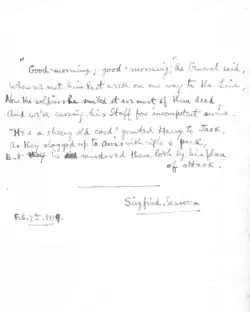 "Good-morning; good-morning," the General said,
When we met him last week on our way to the Line,
Now the soldiers he smiled at are most of them dead,
And we're cursing his Staff for incompetent swine.
"He's a cheery old card," grunted Harry to Jack.
As they slogged up to Arras with rifle & pack,
But he murdered them both by his plan
of attack.
Siegfried Sassoon
Feb. 7th. 1919.